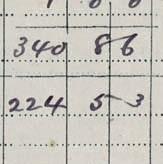 340 86
224 53